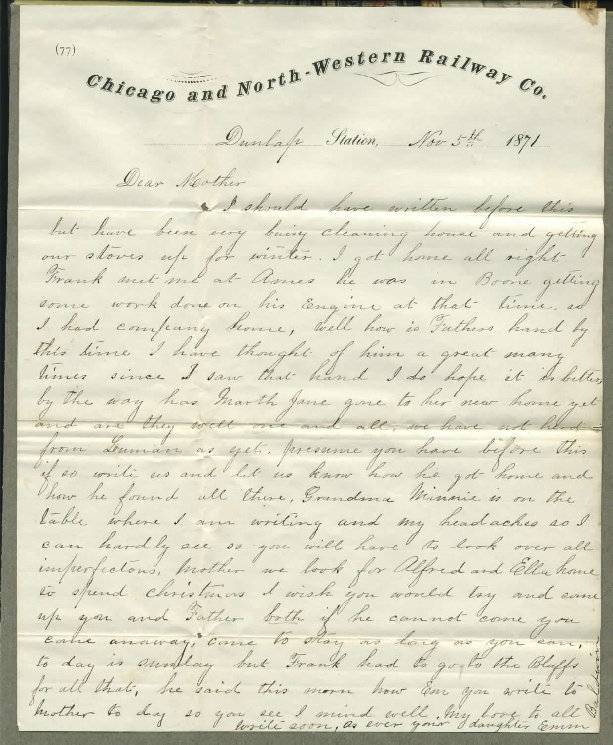 (77)
Chicago and North-Western Railway Co.
Dunlap Station, Nov 5th 1871
Dear Mother
I should have written before this
but have been very buisy cleaning house and getting
our stoves up for winter. I got home all right
Frank met me at Ames he was in Boone getting
some work done on his Engine at that time. so
I had company home, well how is Fathers hand by
this time I have thought of him a great many
times since I saw that hand I do hope it is better,
by the way has Marth Jane gone to her new home yet
and are they well one and all, we have not herd
from Luman as yet. presume you have before this
if so write us and let us know how he got home and
how he found all there. Grandma Minnie is on the
table where I am writing and my head aches so I
can hardly see so you will have to look over all
imperfectons, Mother we look for Alfred and Ella home
to spend christmas I wish you would try and come
up you and Father both if he cannot come you
come anaway, come to stay as long as you can,
to day is sunday but Frank had to go to the Bluffs
for all that, he said this morn now Em you write to
Mother to day so you see I mind well. My love to all
write soon, as ever your daughter Emm